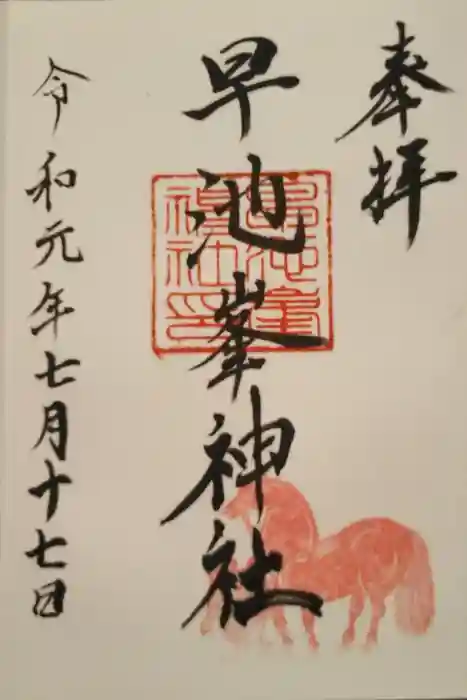 奉拝
早池峯神社
早池峯神社印
令和元年七月十七日